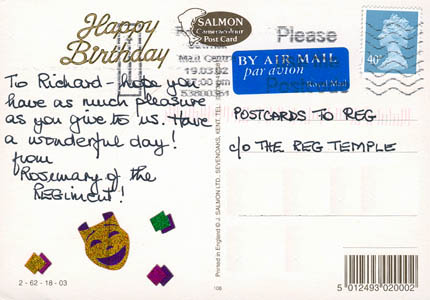 Happy
Birthday
SALMON
Cameracolour
Post Card
Please
19.03.02
BY AIR MAIL
par avion
Royal Mail
40
To Richard - hope you
have as much pleasure
as you give to us. Have
a wonderful day!
from
Rosemary of the
REGiment!
POSTCARDS TO REG
c/o THE REG TEMPLE
Printed in England © J. SALMON LTD., SEVENOAKS, KENT, TEL.
2 - 62 - 18 - 03
108
5 012493 020002